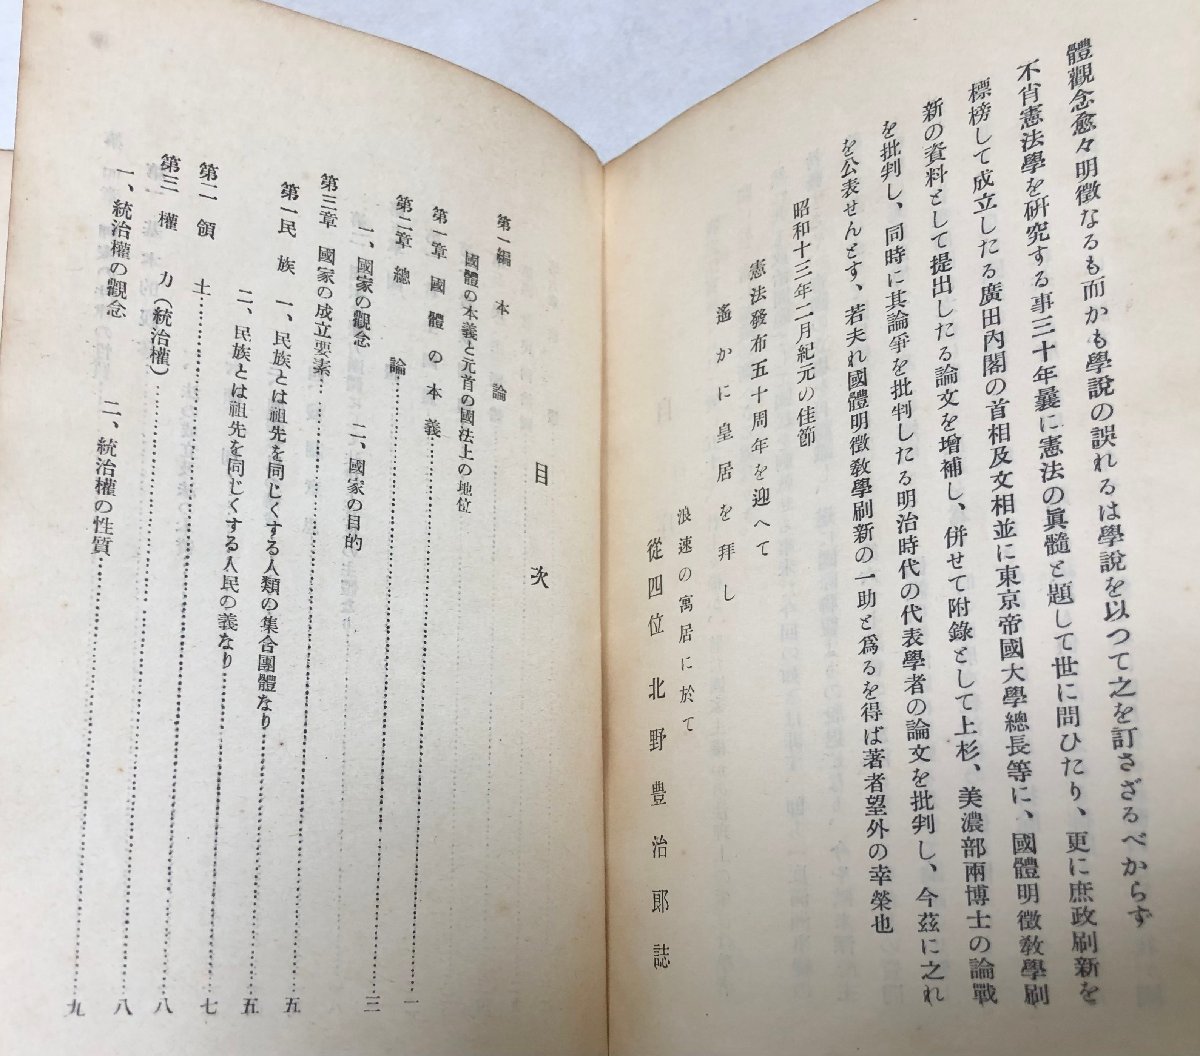 體觀念愈々明徴なるも而かも學說の誤れるは學說を以つて之を訂さざるべからず
不肖憲法學を硏究する事三十年曩に憲法の眞髓と題して世に問ひたり、更に庶政刷新を
標榜して成立したる廣田內閣の首相及文相並に東京帝國大學總長等に、國體明徴敎學刷
新の資料として提出したる論文を增補し、併せて附錄として上杉、美濃部兩博士の論戰
を批判し、同時に其論爭を批判したる明治時代の代表學者の論文を批判し、今茲に之れ
を公表せんとす、若夫れ國體明徴敎學刷新の一助と爲るを得ば著者望外の幸榮也
昭和十三年二月紀元の佳節
憲法發布五十周年を迎へて
遙かに皇居を拜し
浪速の寓居に於て
從四位 北野豐治郞誌
目次
第一編 本論
國體の本義と元首の國法上の地位
第一章 國體の本義……一
第二章 總論……三
一、國家の觀念 二、國家の目的
第三章 國家の成立要素……五
第一 民族 一、民族とは祖先を同じくする人類の集合團體なり……五
二、民族とは祖先を同じくする人民の義なり……七
第二 領土……八
第三 權力（統治權）……八
一、統治權の觀念 二、統治權の性質……九